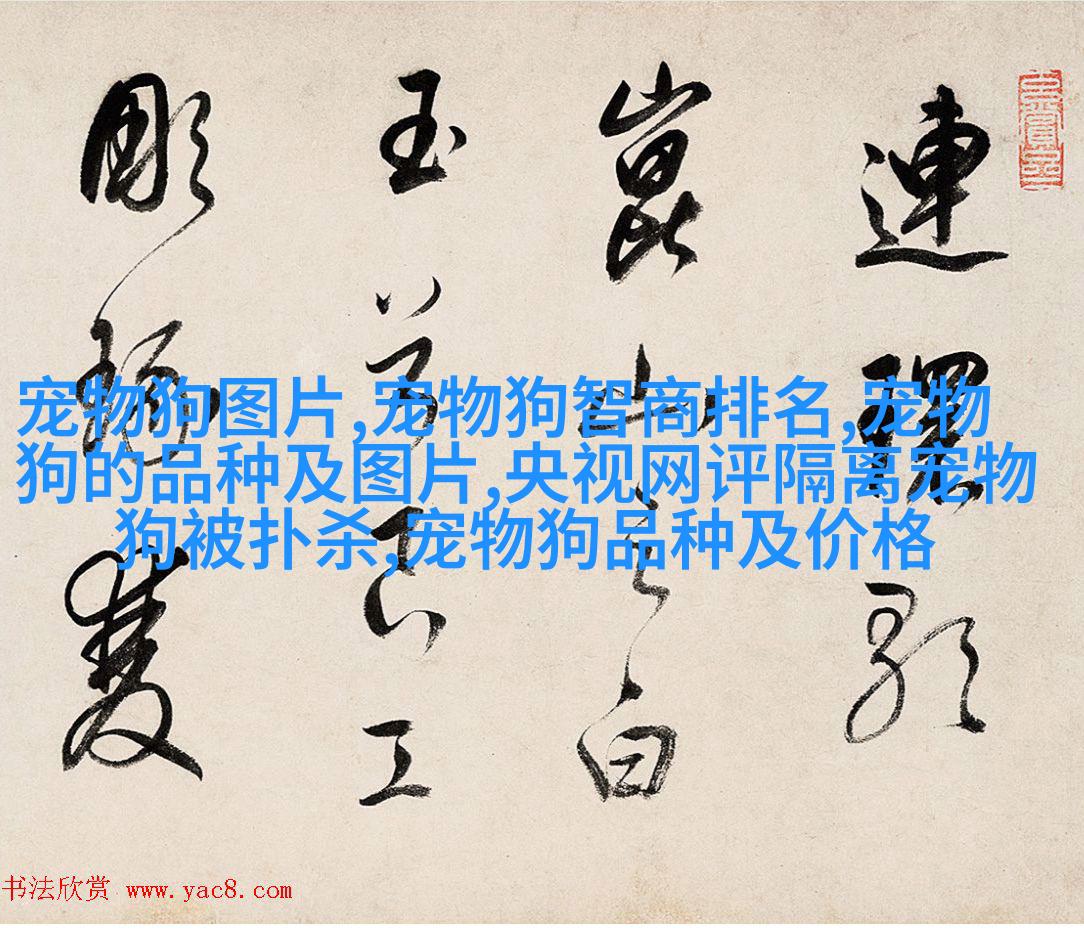 連環歌
崑山之白
玉工
彫雙
宠物狗图片,宠物狗智商排名,宠物
狗的品种及图片,央视网评隔离宠物
狗被扑杀,宠物狗品种及价格
书法欣赏 www.yac8.com